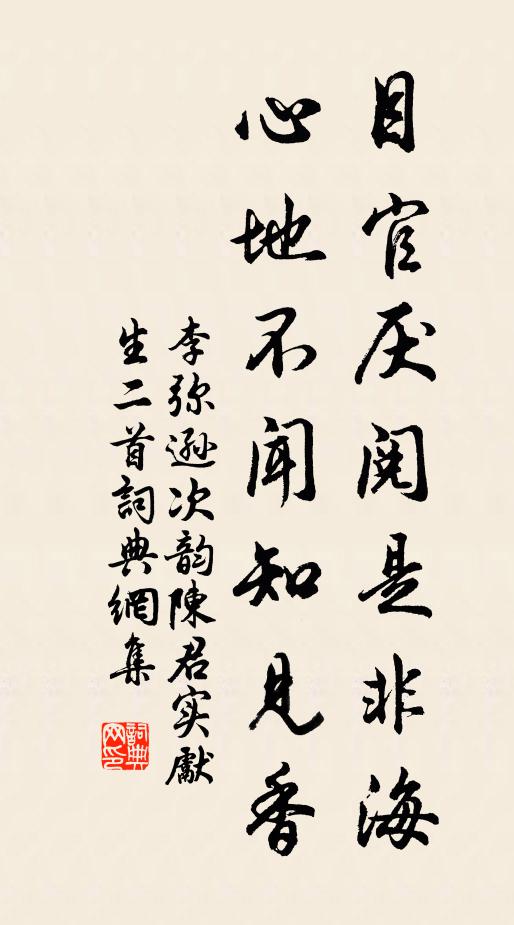 目官厌阅是非海
心地不闻知见香
李弥逊次韵陳君实獻
生二首詞典網集
詞典网印